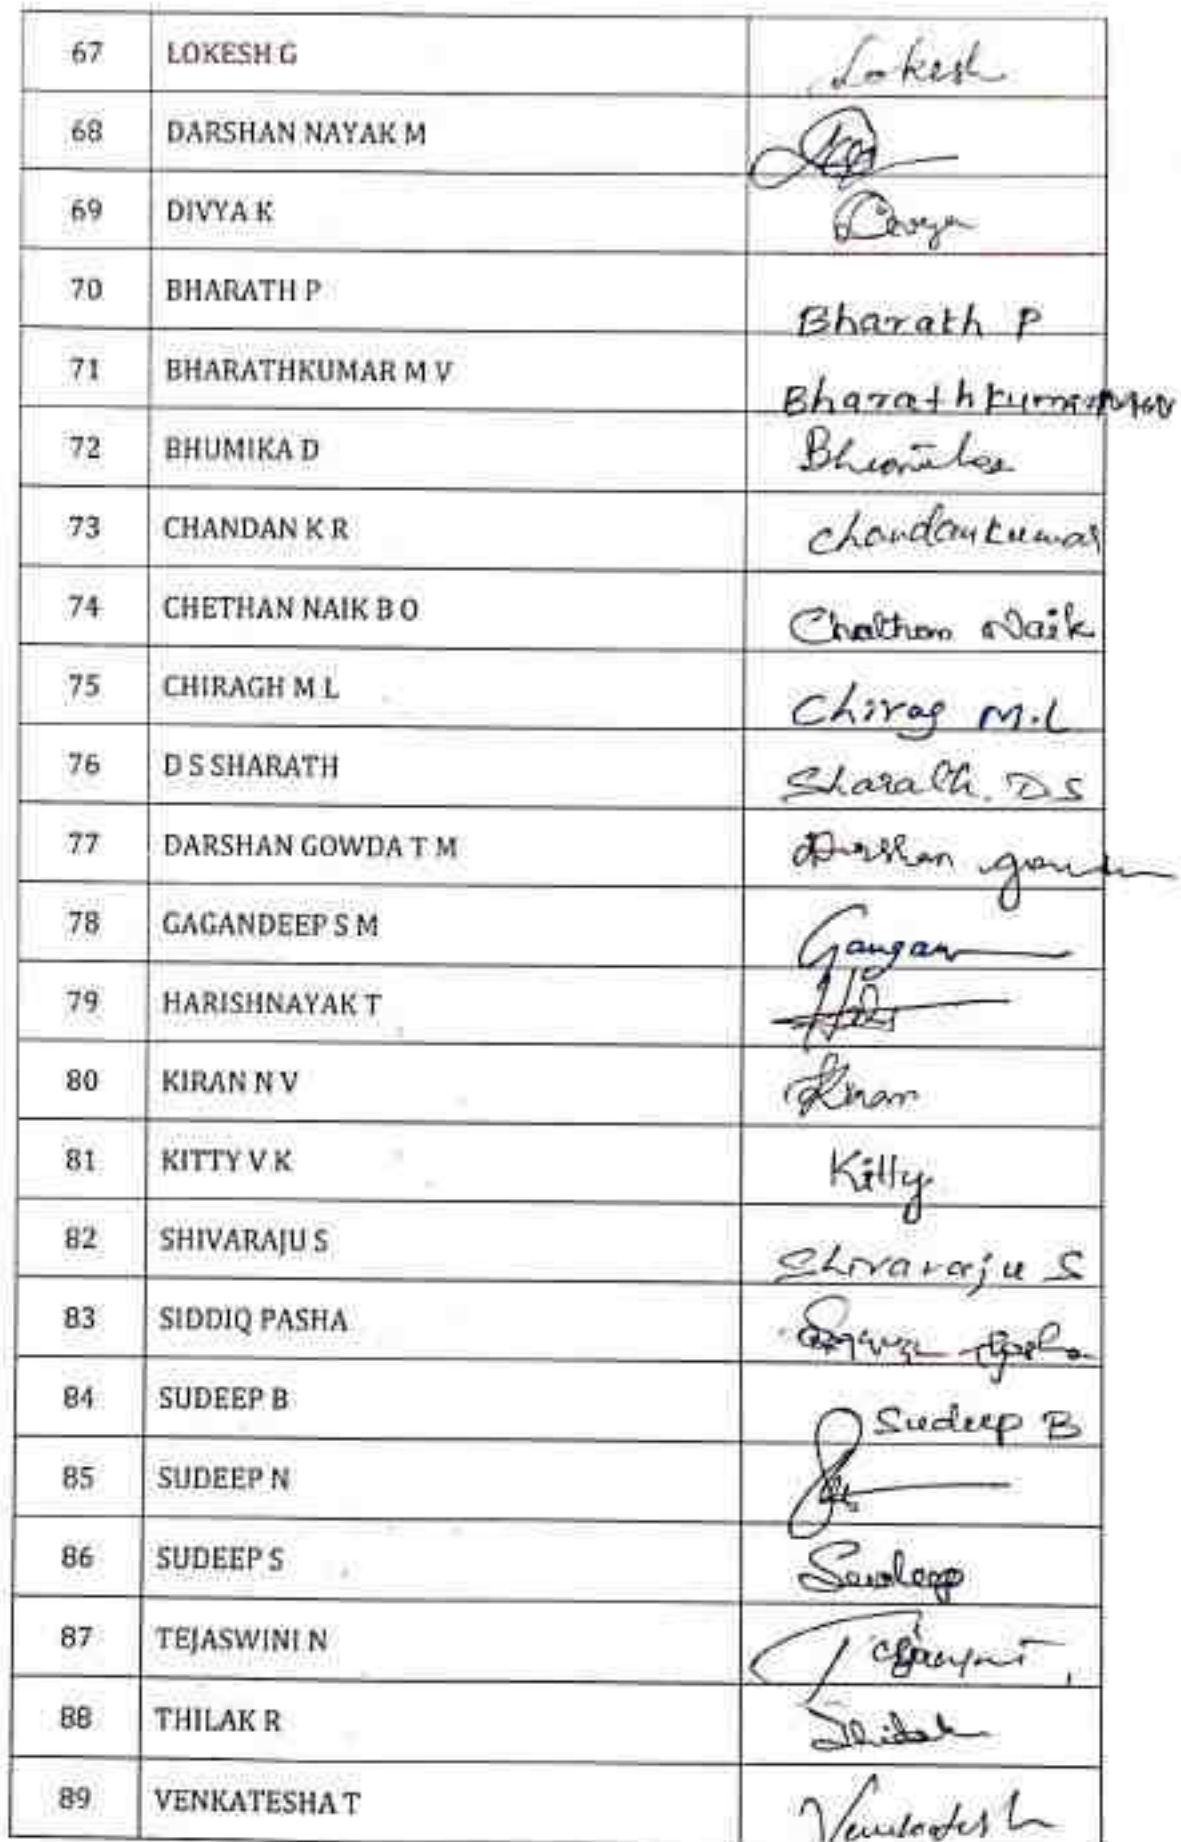 67 LOKESH G Lokesh
68 DARSHAN NAYAK M
69 DIVYA K Divya
70 BHARATH P Bharath P
71 BHARATHKUMAR M V Bharathkumar MV
72 BHUMIKA D Bhumika
73 CHANDAN K R Chandankumar
74 CHETHAN NAIK B O Chethan Naik
75 CHIRAGH M L Chirag M.L
76 D S SHARATH Sharath. D S
77 DARSHAN GOWDA T M Darshan gowda
78 GAGANDEEP S M
79 HARISHNAYAK T
80 KIRAN N V Kiran
81 KITTY V K Kitty
82 SHIVARAJU S Shivaraju S
83 SIDDIQ PASHA
84 SUDEEP B Sudeep B
85 SUDEEP N
86 SUDEEP S Sudeep
87 TEJASWINI N
88 THILAK R Thilak
89 VENKATESHA T Venkatesh